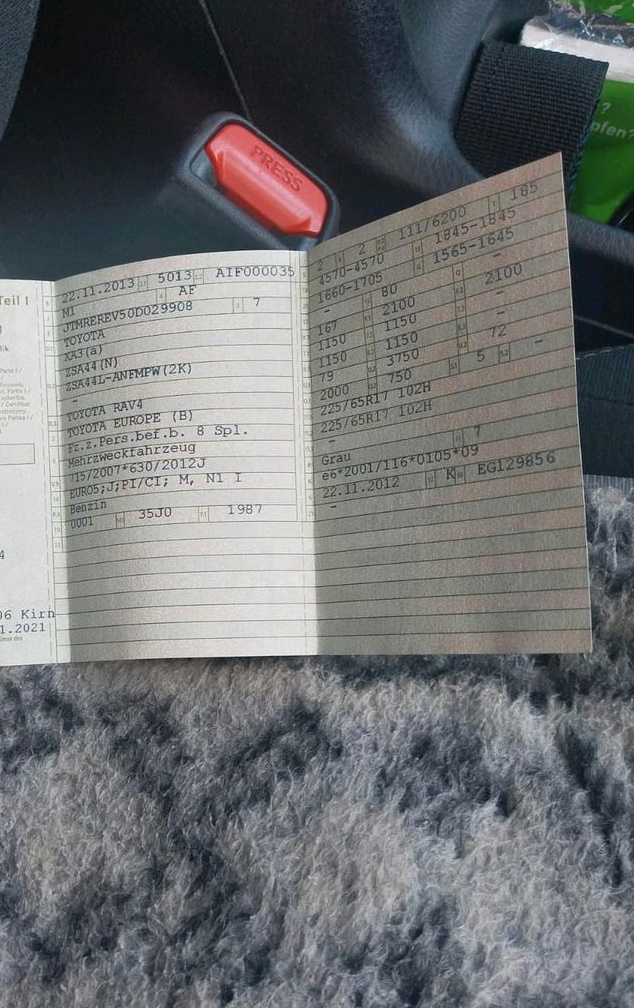 ?
pfen?
PRESS
Teil I
06 Kirn
1.2021
22.11.2013 5013 AIF000035
M1 AF
JTMREREV50D029908 7
TOYOTA
XA3(a)
ZSA44(N)
ZSA44L-ANFMPW(2K)
-
TOYOTA RAV4
TOYOTA EUROPE (B)
Fz.z.Pers.bef.b. 8 Spl.
Mehrzweckfahrzeug
715/2007*630/2012J
EURO5;J;PI/CI; M, N1 I
Benzin
0001 35J0 1987
2 2 111/6200 185
4570-4570 1845-1845
1660-1705 1565-1645
- 80 -
167 2100 2100
1150 1150 -
1150 1150 -
79 3750 72
2000 750 5 -
225/65R17 102H
225/65R17 102H
-
Grau 7
e6*2001/116*0105*09
22.11.2012 K EG129856
-